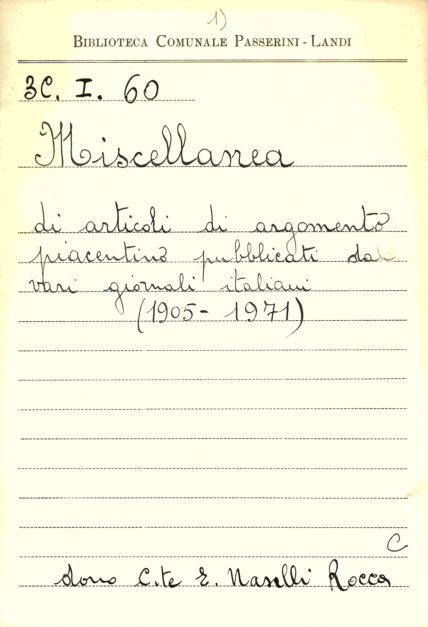 1)
BIBLIOTECA COMUNALE PASSERINI-LANDI
3C. I. 60
Miscellanea
di articoli di argomento
piacentino pubblicati da
vari giornali italiani
(1905-1971)
C
dono C.te E. Naselli Rocca